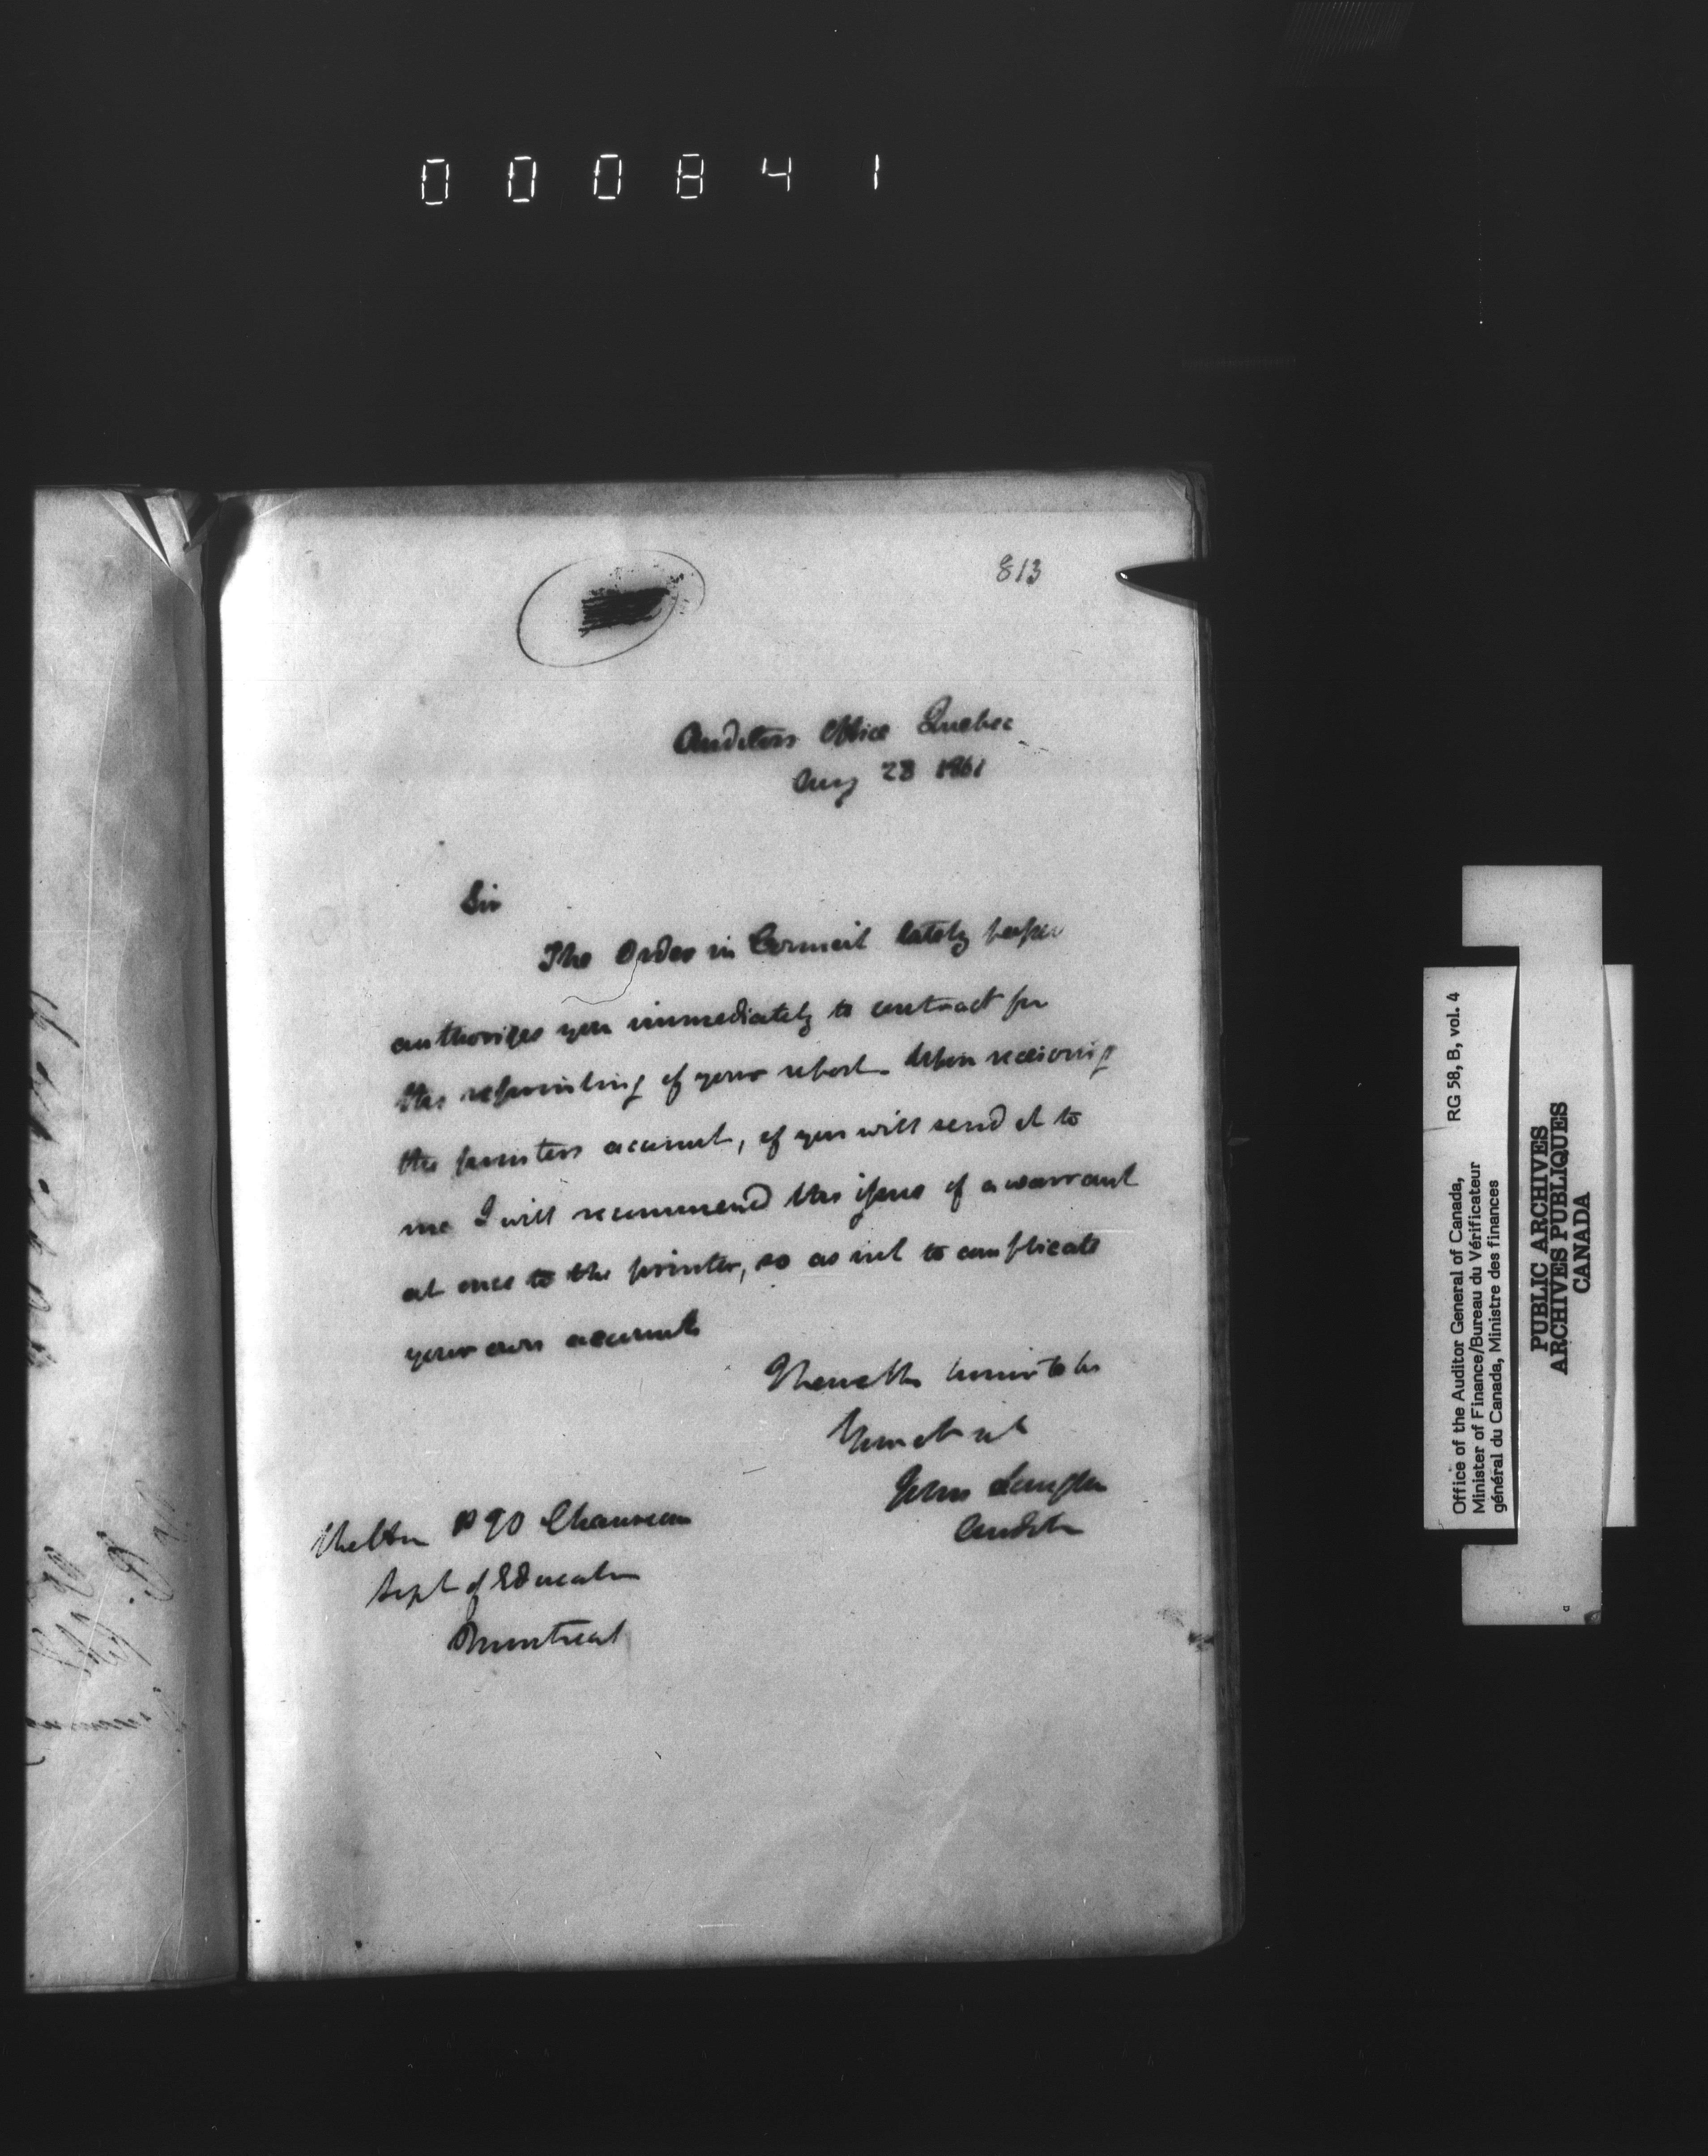 000841
813
Auditors Office Quebec
Aug 23 1861
Sir
The Order in Council lately passed
authorizes you immediately to contract for
the reprinting of your report. Upon receiving
the printers account, if you will send it to
me I will recommend the issue of a warrant
at once to the printer, so as not to complicate
your own accounts
I have the honor to be
Your obt svt
John Langton
Auditor
The Hon P J O Chauveau
Supt of Education
Montreal
RG 58, B, vol. 4
Office of the Auditor General of Canada,
Minister of Finance/Bureau du Vérificateur
général du Canada, Ministre des finances
PUBLIC ARCHIVES
ARCHIVES PUBLIQUES
CANADA